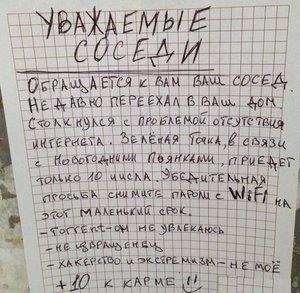 УВАЖАЕМЫЕ
СОСЕДИ
ОБРАЩАЕТСЯ К ВАМ ВАШ СОСЕД.
НЕ ДАВНО ПЕРЕЕХАЛ В ВАШ ДОМ
СТОЛКНУЛСЯ С ПРОБЛЕМОЙ ОТСУТСТВИЯ
ИНТЕРНЕТА. ЗЕЛЁНАЯ ТОЧКА, В СВЯЗИ
С НОВОГОДНИМИ ПЬЯНКАМИ, ПРИЕДЕТ
ТОЛЬКО 10 ЧИСЛА. УБЕДИТЕЛЬНАЯ
ПРОСЬБА СНИМИТЕ ПАРОЛЬ С WiFi НА
ЭТОТ МАЛЕНЬКИЙ СРОК.
- TORRENT-ОМ НЕ УВЛЕКАЮСЬ
- НЕ ИЗВРАЩЕНЕЦ
- ХАКЕРСТВО И ЭКСТРЕМИЗМ - НЕ МОЁ
+10 К КАРМЕ !!